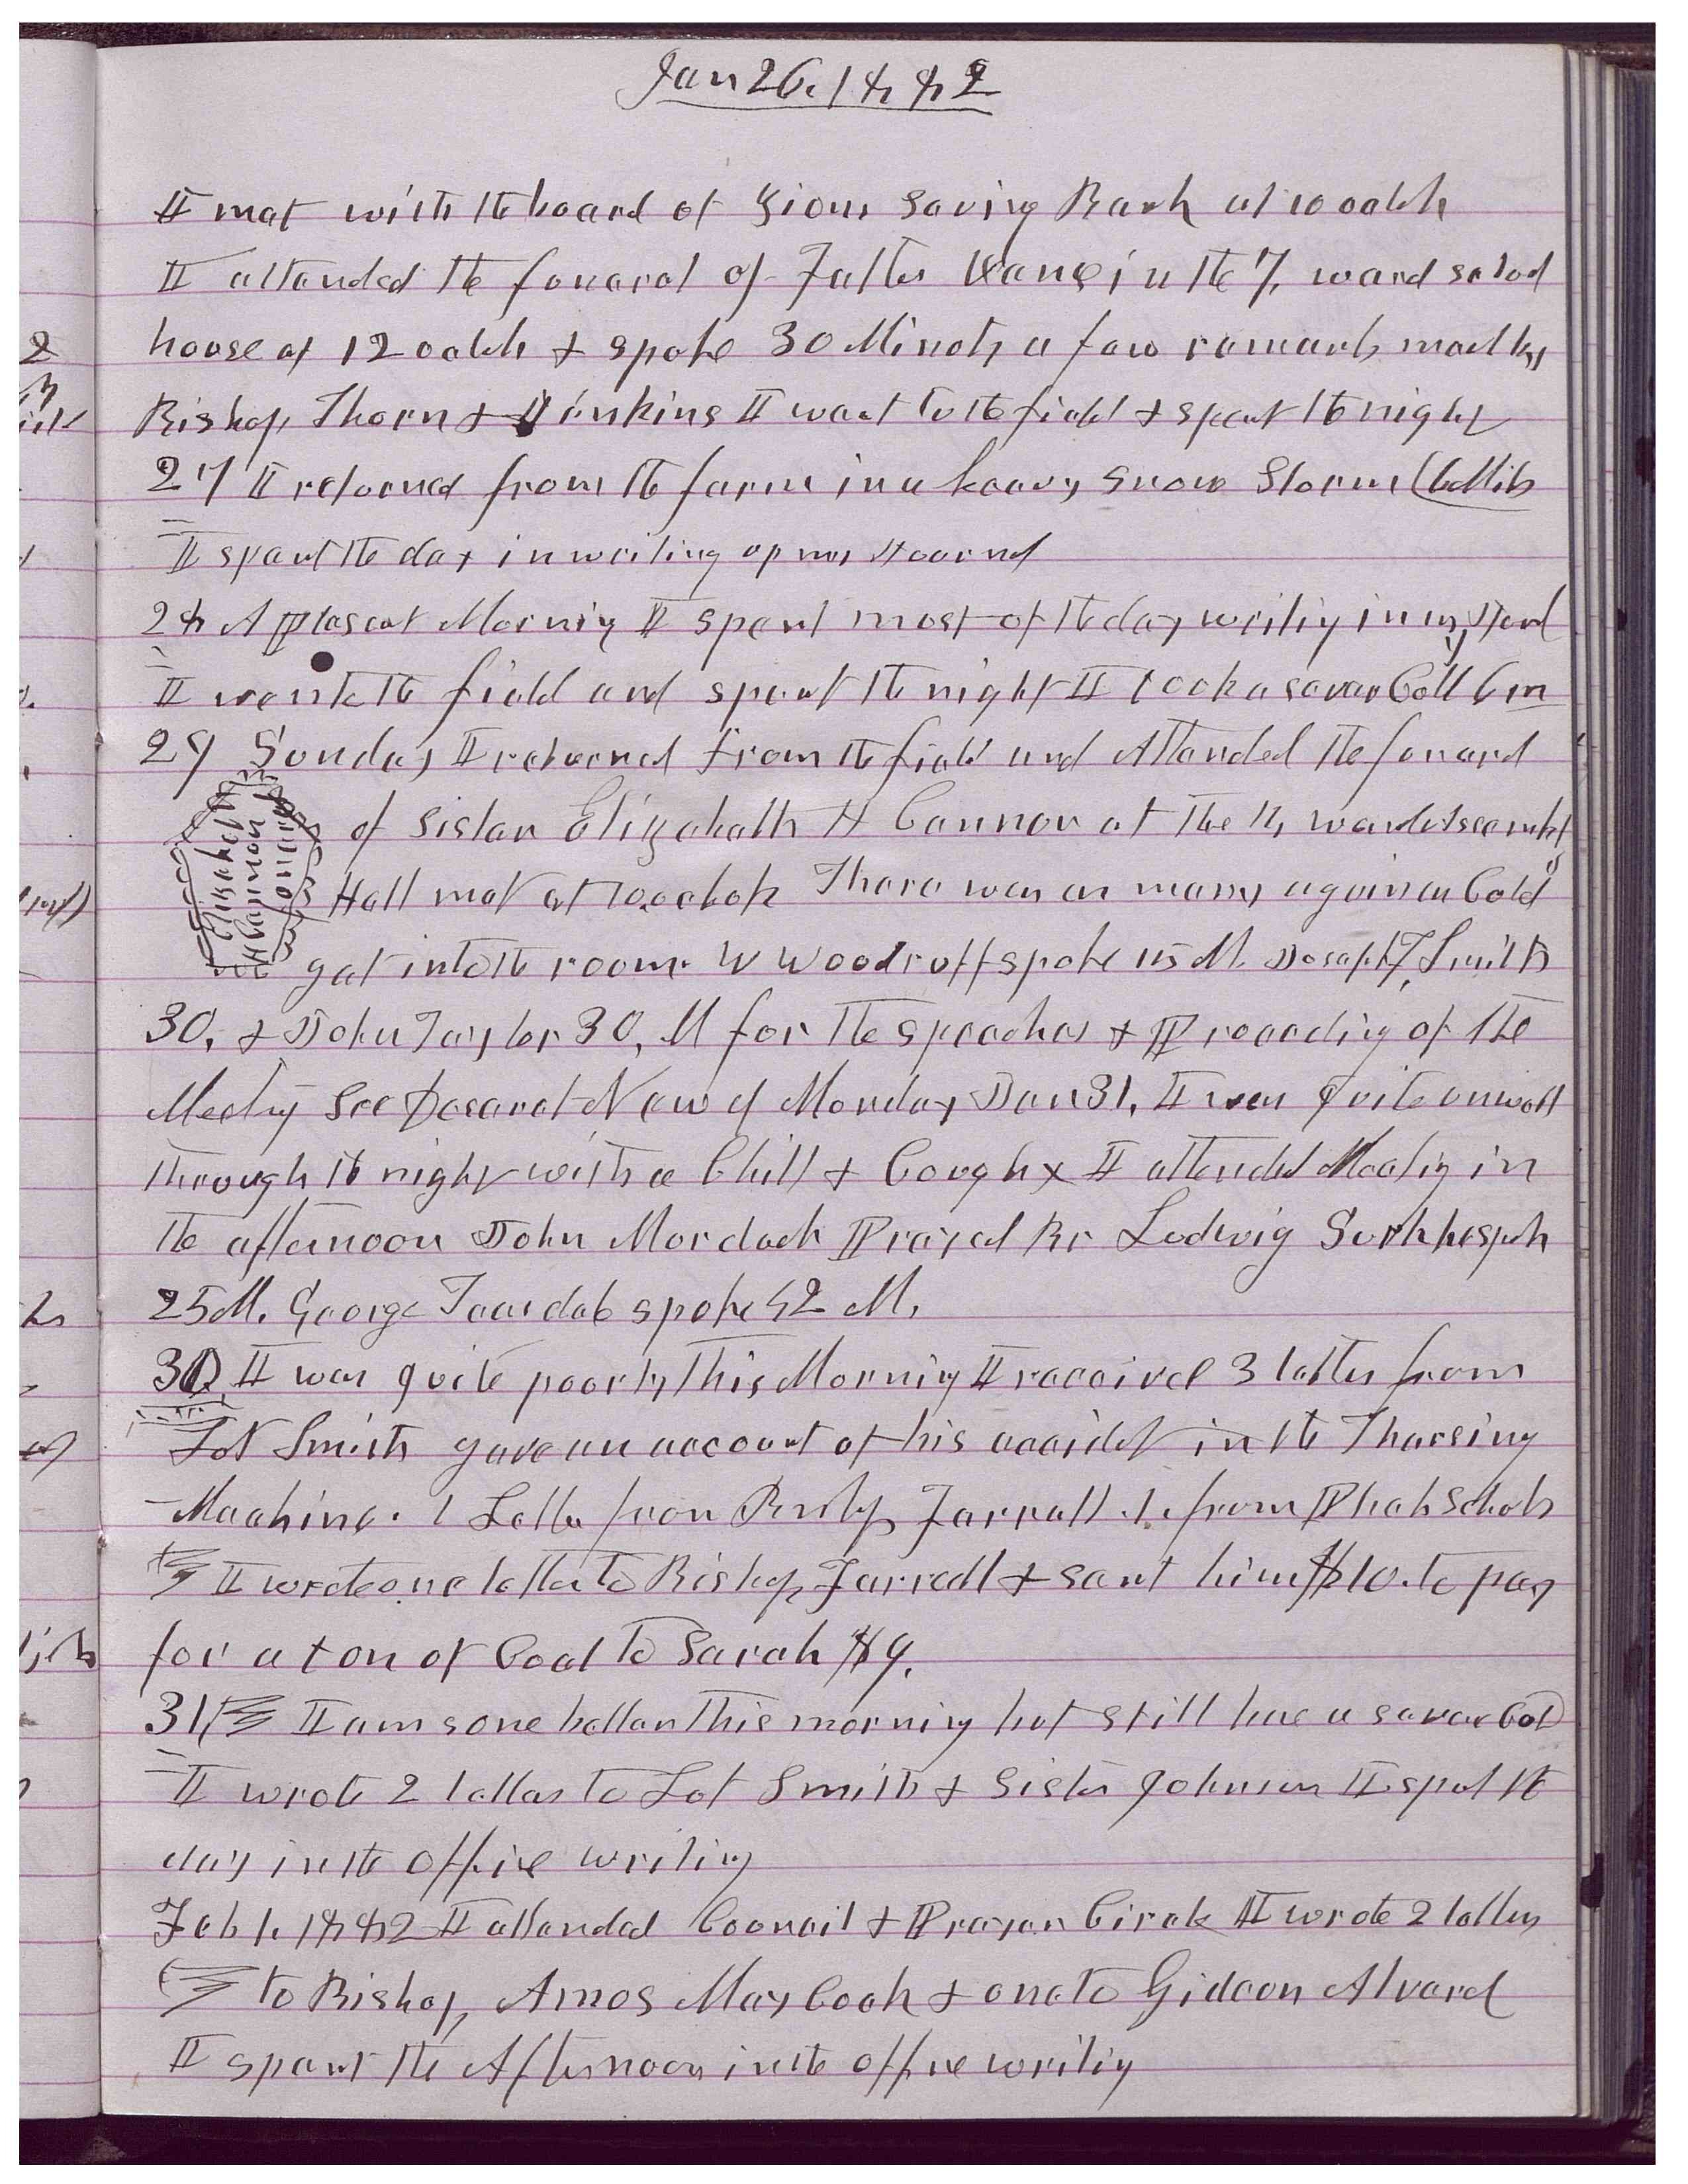 Jan 26. 1882
I met with the board of Zions Saving Bank at 10 oclk
I attended the funeral of Father in the 7, ward school
house at 12 oclk & spoke 30 Minuts a few remarks mad by
Bishop Thorn & Jinkins I went to the field & spent the night
27 I returned from the farm in a heavy snow Storm (6 Mils
I spent the day in writing up my Journal
28 A Pleasent Morning I spent most of the day writing in my Journal
I went to the field and spent the night I took a sever Cold 6 m
29 Sunday I returned from the field and Attended the funeral
Elizabeth
H Cannon
Funeral
of Sister Elizabeth H Cannon at the 14 ward Assembly
Hall met at 10 oclok There was as many again as Could
get into the room. W Woodruff spoke 15 M. Joseph F, Smith
30, & John Taylor 30, M for the speeches & Proceeding of the
Meeting See Deseret News of Monday Jan 31, I was quite unwell
through the night with a Chill & Cough x I attended Meeting in
the afternoon John Mordock Prayed Br Ludwig Suhrke spoke
25 M. George Teasdale spoke 42 M.
30, I was quite poorly this Morning I received 3 letters from
Lot Smith gave an account of his accident in the Tharsing
Machine. 1 Letter from Bishop Farrell. 1. from Pheb Scholes
I wrote one letter to Bishop Farrell & sent him $10. to pay
for a ton of Coal to Sarah $9.
31 I am some better this morning but still have a sever Cold
I wrote 2 letters to Lot Smith & Sister Johnson I spent the
day in the office writing
Feb 1. 1882 I attended Council & Prayer Circle I wrote 2 letters
to Bishop, Amos Maycock & one to Gideon Alvard
I spent the Afternoon in the office writing